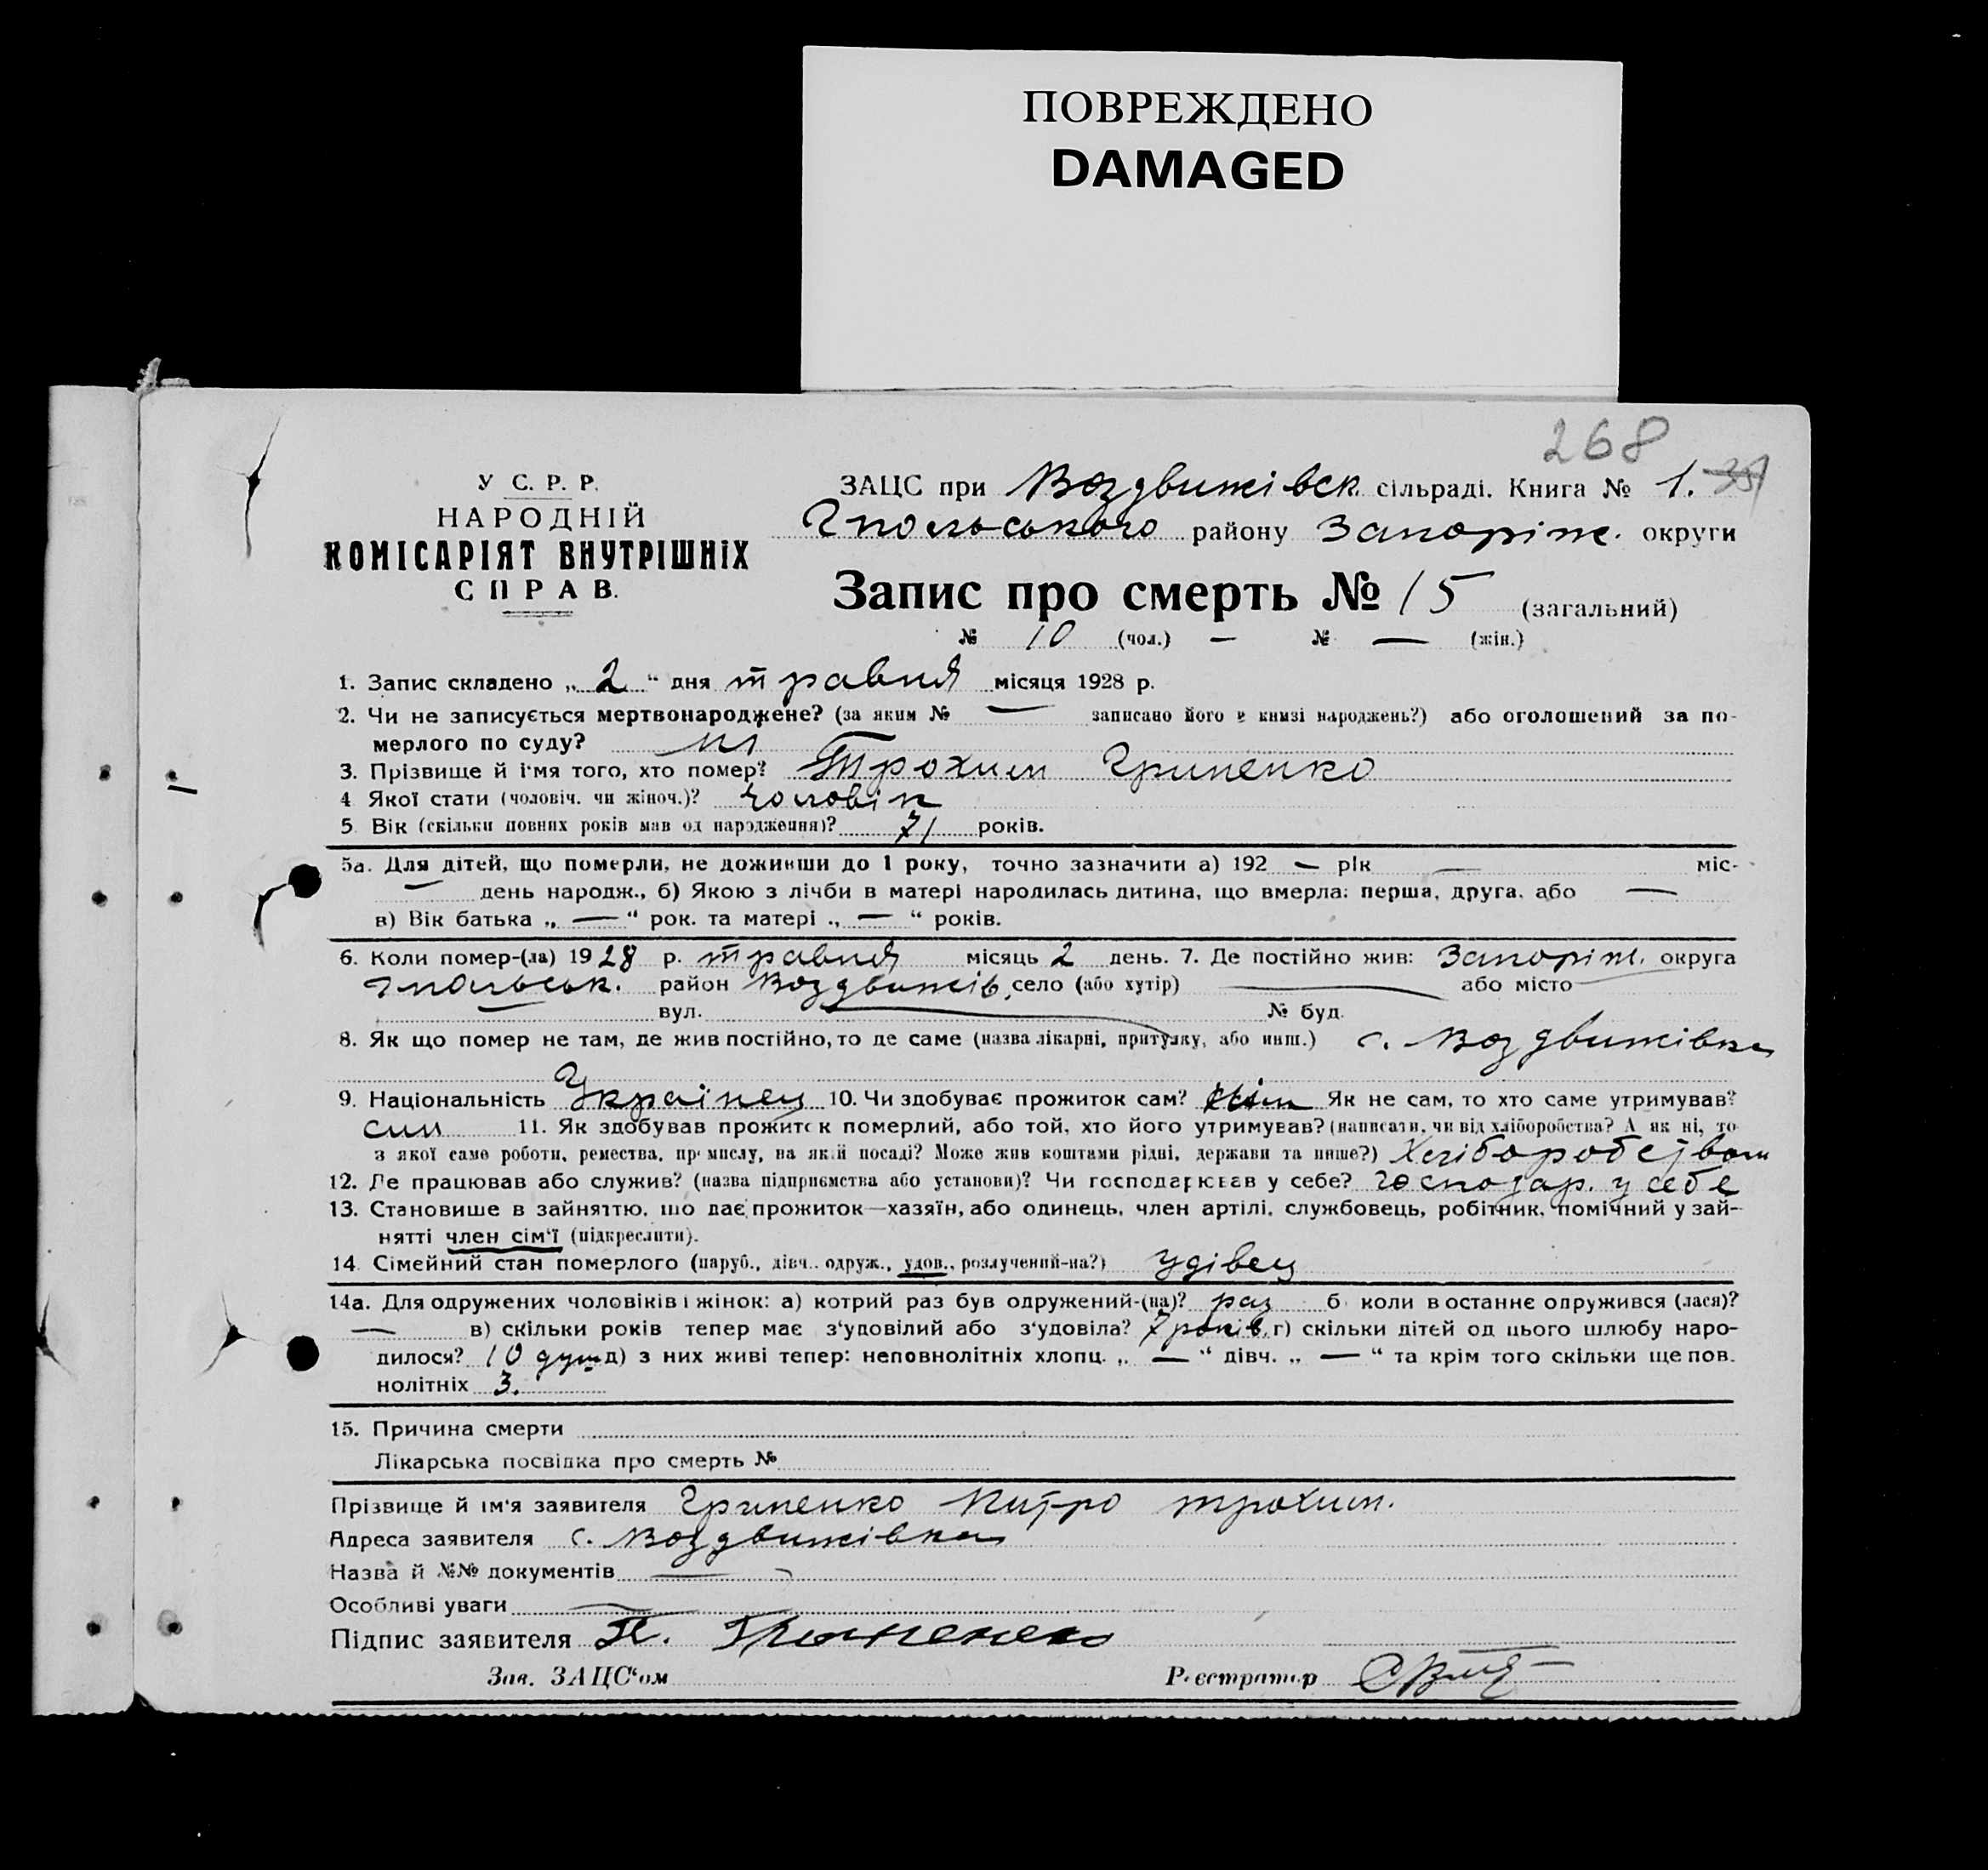 ПОВРЕЖДЕНО
DAMAGED
268
У С. Р. Р.
НАРОДНІЙ
КОМІСАРІЯТ ВНУТРІШНІХ
СПРАВ.
ЗАЦС при Воздвижівск. сільраді. Книга № 1.
Гпольського району Запоріж. округи
Запис про смерть № 15 (загальний)
№ 10 (чол.) — № — (жін.)
1. Запис складено „ 2 “ дня травня місяця 1928 р.
2. Чи не записується мертвонароджене? (за яким № — записано його в книзі народжень?) або оголошений за по-
мерлого по суду? ні
3. Прізвище й і'мя того, хто помер? Трохим Гриненко
4 Якої стати (чоловіч. чи жіноч.)? чоловік
5 Вік (скільки повних років мав од народження)? 71 років.
5а. Для дітей, що померли, не доживши до 1 року, точно зазначити а) 192 — рік — міс-
— день народж., б) Якою з лічби в матері народилась дитина, що вмерла: перша, друга, або —
в) Вік батька „ — “ рок. та матері „ — “ років.
6. Коли помер-(ла) 1928 р. травня місяць 2 день. 7. Де постійно жив: Запоріж. округа
Гпольськ. район Воздвижів. село (або хутір) — або місто
вул. № буд.
8. Як що помер не там, де жив постійно, то де саме (назва лікарні, притулку, або инш.) с. Воздвижівка
9. Національність Українець 10. Чи здобуває прожиток сам? Як не сам, то хто саме утримував?
син 11. Як здобував прожиток померлий, або той, хто його утримував? (написати, чи від хліборобства? А як ні, то
з якої саме роботи, ремества, промислу, на якій посаді? Може жив коштами рідні, держави та инше?) Хліборобством
12. Де працював або служив? (назва підприємства або установи)? Чи господарював у себе? Господар. у себе
13. Становище в зайняттю, що дає прожиток—хазяїн, або одинець, член артілі, службовець, робітник, помічний у зай-
нятті член сім'ї (підкреслити).
14. Сімейний стан померлого (паруб., дівч.. одруж., удов., розлучений-на?) удівец
14а. Для одружених чоловіків і жінок: а) котрий раз був одружений-(на)? раз б) коли в останнє одружився (лася)?
— в) скільки років тепер має з'удовілий або з'удовіла? 7 років г) скільки дітей од цього шлюбу наро-
дилося? 10 душ д) з них живі тепер: неповнолітніх хлопц. „ — “ дівч. „ — “ та крім того скільки ще пов.
нолітніх 3.
15. Причина смерти
Лікарська посвідка про смерть №
Прізвище й ім'я заявителя Гриненко трохим.
Адреса заявителя с. Воздвижівка
Назва й №№ документів —
Особливі уваги —
Підпис заявителя П. Гриненко
Зав. ЗАЦС'ом Реєстратор